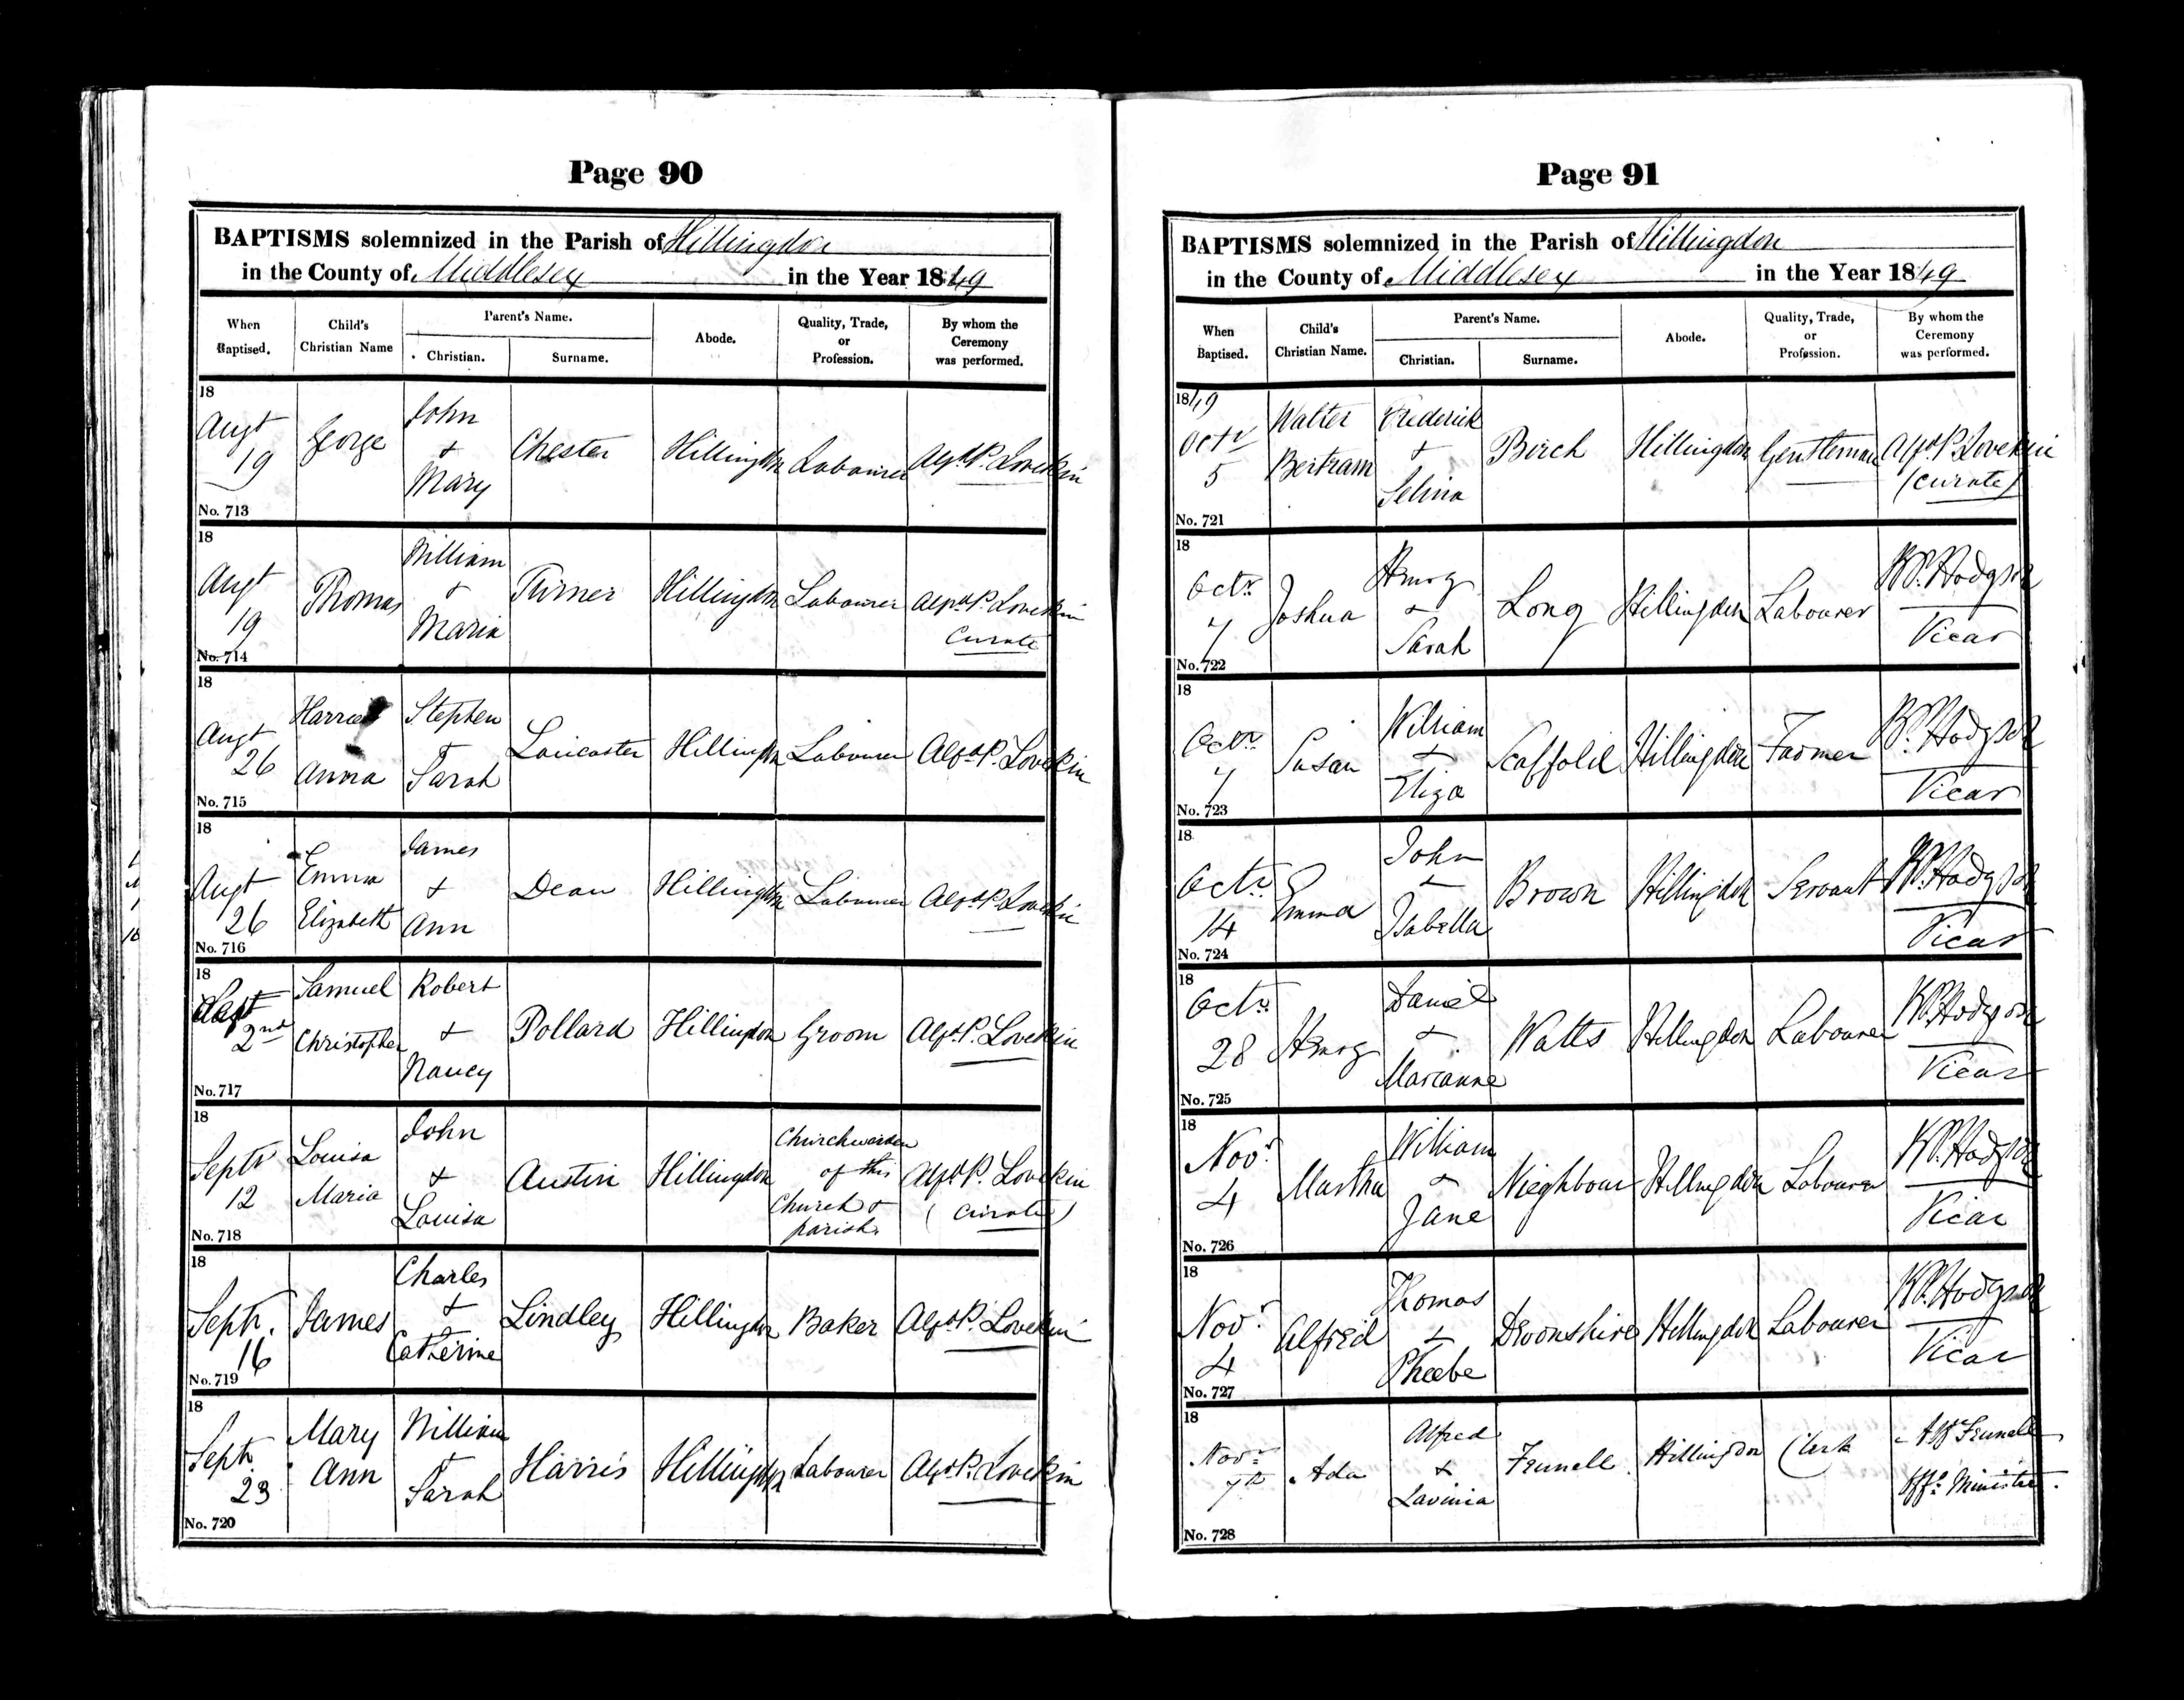 Page 90
BAPTISMS solemnized in the Parish of Hillingdon
in the County of Middlesex in the Year 1849
When Baptised. Child's Christian Name Parent's Name. Christian. Surname. Abode. Quality, Trade, or Profession. By whom the Ceremony was performed.
18 Augt 19 George John + Mary Chester Hillingdon Labourer Alfd P. Lovekin
No. 713
18 Augt 19 Thomas William + Maria Turner Hillingdon Labourer Alfd P. Lovekin Curate
No. 714
18 Augt 26 Harriet Anna Stephen + Sarah Lancaster Hillingdon Labourer Alfd P. Lovekin
No. 715
18 Augt 26 Emma Elizabeth James + Ann Dean Hillingdon Labourer Alfd P. Lovekin
No. 716
18 2nd Samuel Christopher Robert + Nancy Pollard Hillingdon Groom Alfd P. Lovekin
No. 717
18 Septr 12 Louisa Maria John + Louisa Austin Hillingdon Churchwarden of this Church & parish. Alfd P. Lovekin (Curate)
No. 718
18 Septr. 16 James Charles + Catherine Lindley Hillingdon Baker Alfd P. Lovekin
No. 719
18 Septr. 23 Mary Ann William + Sarah Harris Hillingdon Labourer Alfd P. Lovekin
No. 720
Page 91
BAPTISMS solemnized in the Parish of Hillingdon
in the County of Middlesex in the Year 1849
When Baptised. Child's Christian Name. Parent's Name. Christian. Surname. Abode. Quality, Trade, or Profession. By whom the Ceremony was performed.
1849 Octr 5 Walter Bertram Frederick + Selina Birch Hillingdon Gentleman Alfd P. Lovekin (Curate)
No. 721
18 Octr 7 Joshua Henry + Sarah Long Hillingdon Labourer Hodgson Vicar
No. 722
18 Octr 7 Susan William + Eliza Scaffold Hillingdon Farmer Hodgson Vicar
No. 723
18 Octr 14 Emma John + Isabella Brown Hillingdon Servant Hodgson Vicar
No. 724
18 Octr 28 Henry Daniel + Marianne Watts Hillingdon Labourer Hodgson Vicar
No. 725
18 Novr 4 Martha William + Jane Nieghbour Hillingdon Labourer Hodgson Vicar
No. 726
18 Novr 4 Alfred Thomas + Phoebe Devonshire Hillingdon Labourer Hodgson Vicar
No. 727
18 Novr 7th Ada Alfred + Lavinia Hillingdon Clerk Offg Minister.
No. 728